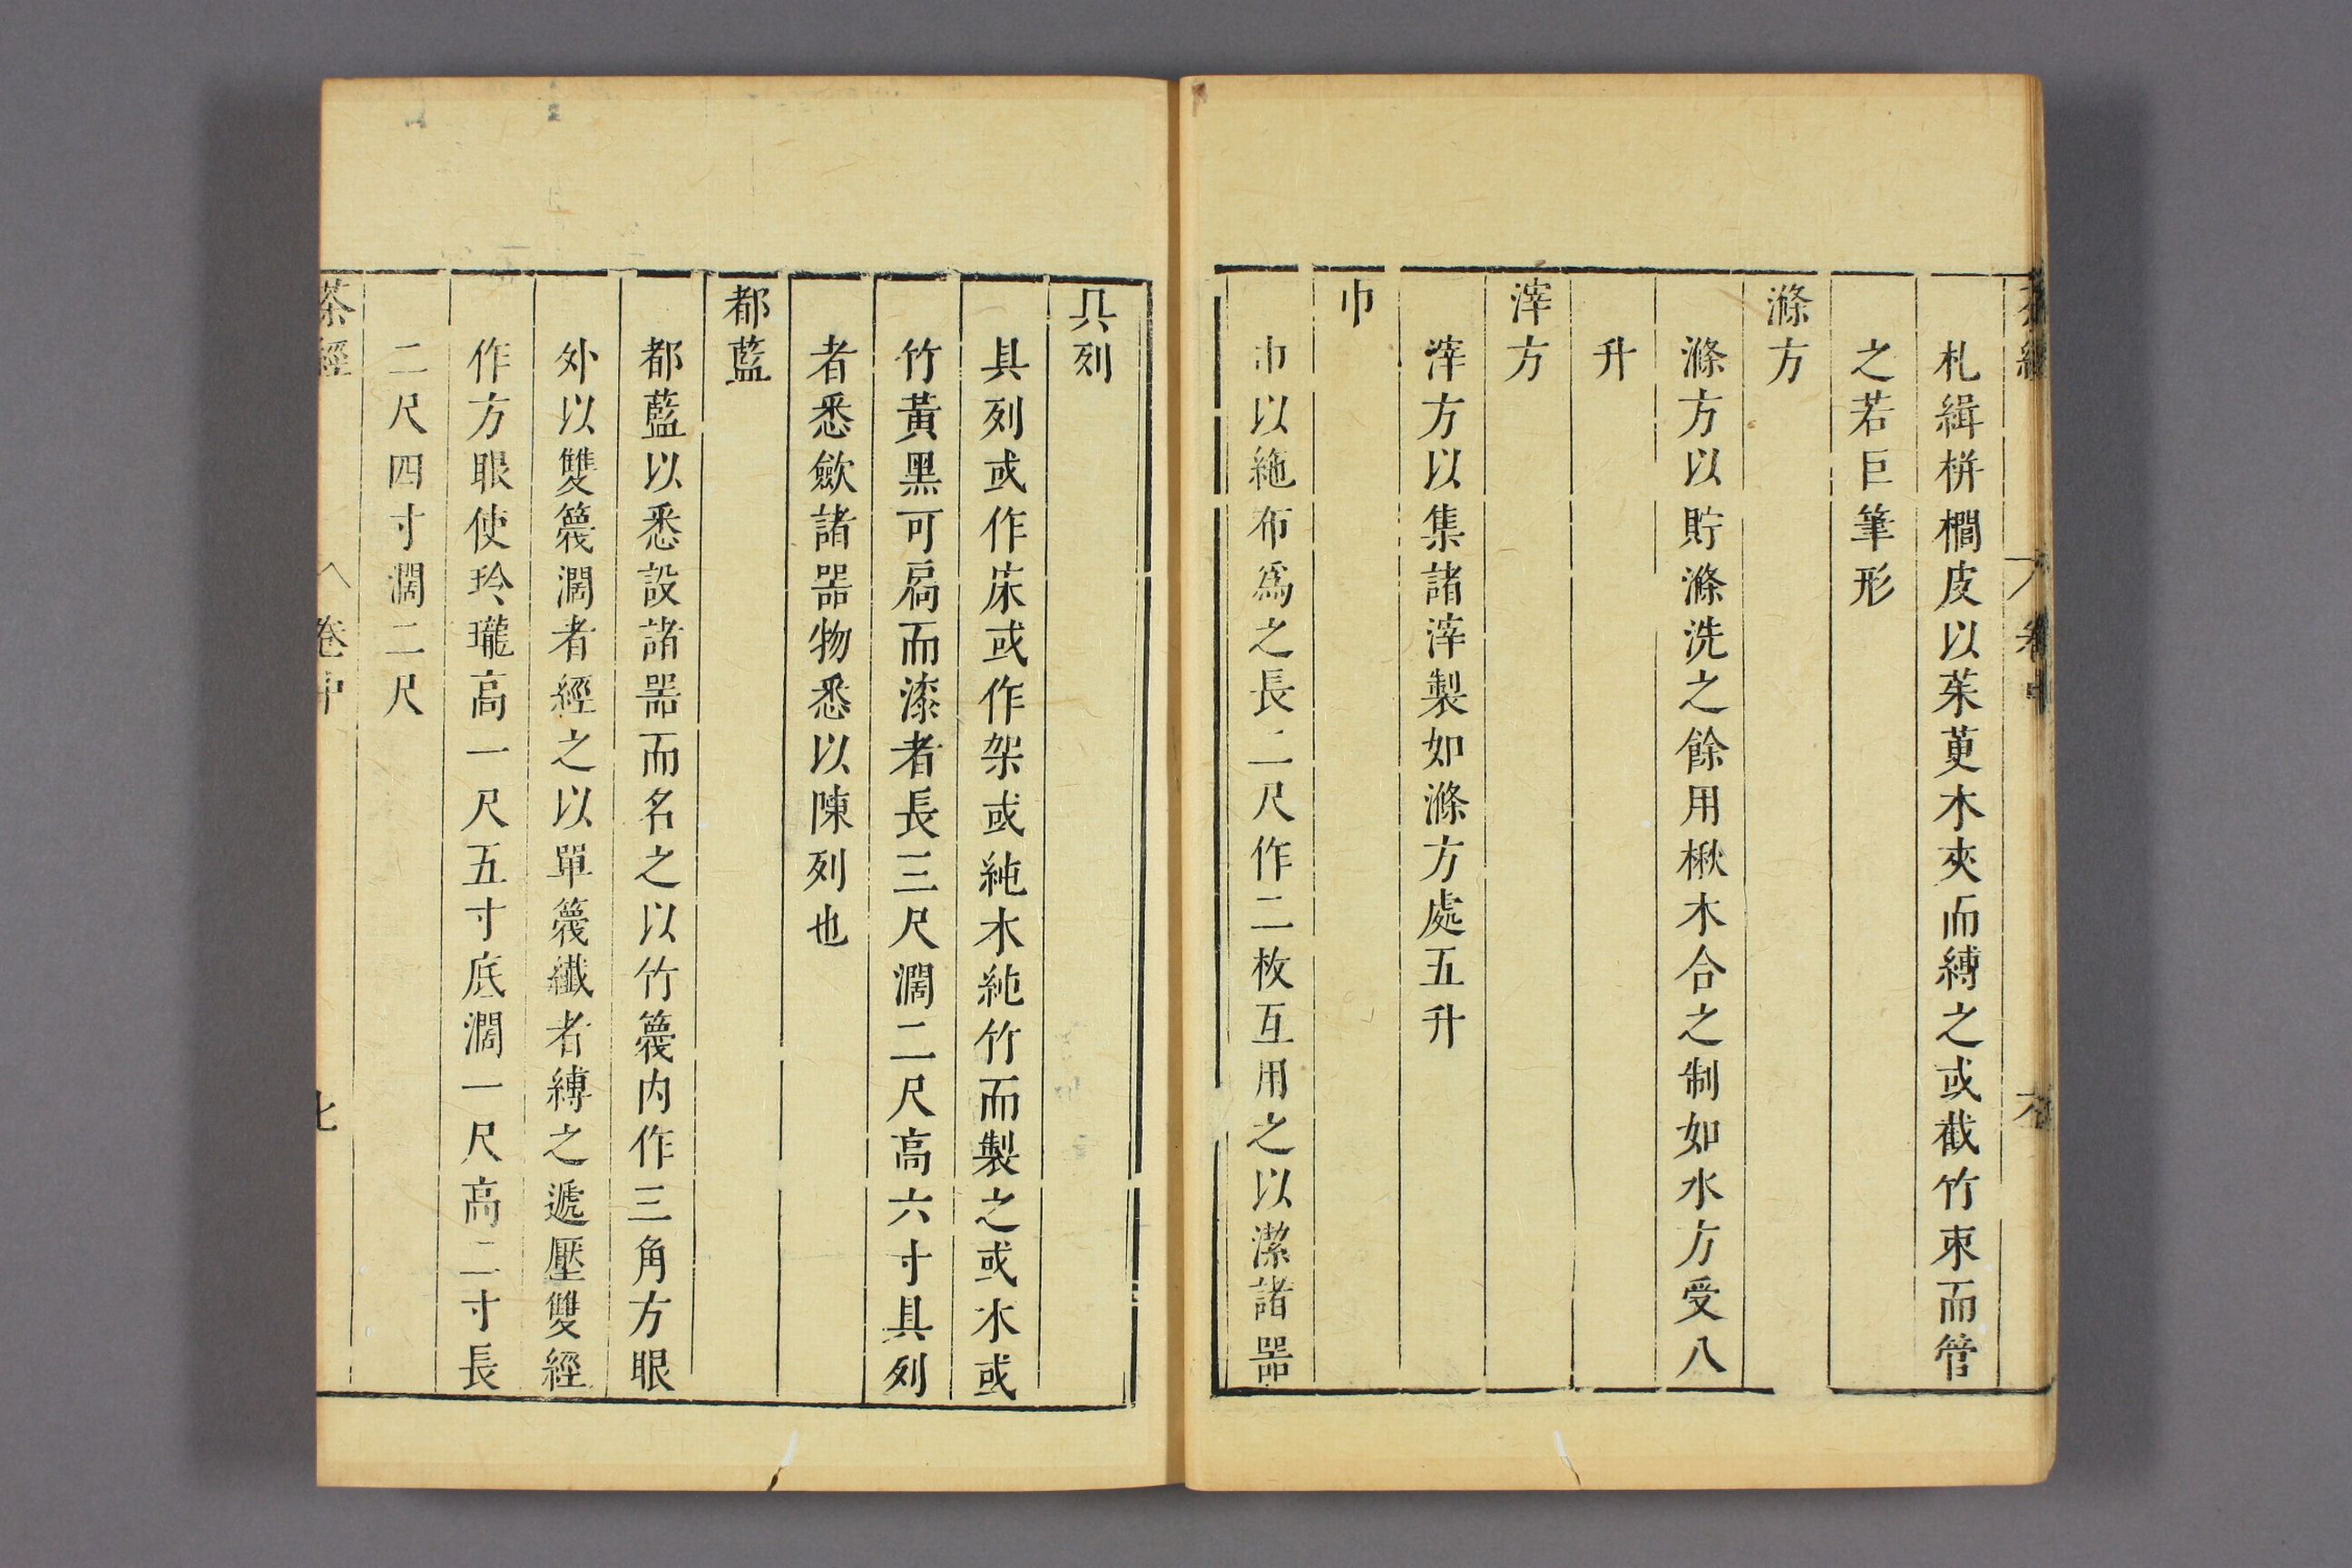 茶經 卷中 六
札緝栟櫚皮以茱萸木夾而縛之或截竹束而管
之若巨筆形
滌方
滌方以貯滌洗之餘用楸木合之制如水方受八
升
滓方
滓方以集諸滓製如滌方處五升
巾
巾以絁布爲之長二尺作二枚互用之以潔諸器
具列
具列或作床或作架或純木純竹而製之或木或
竹黃黑可扃而漆者長三尺濶二尺高六寸具列
者悉歛諸器物悉以陳列也
都藍
都藍以悉設諸器而名之以竹篾内作三角方眼
外以雙篾濶者經之以單篾纖者縛之遞壓雙經
作方眼使玲瓏高一尺五寸底濶一尺高二寸長
二尺四寸濶二尺
茶經 卷中 七